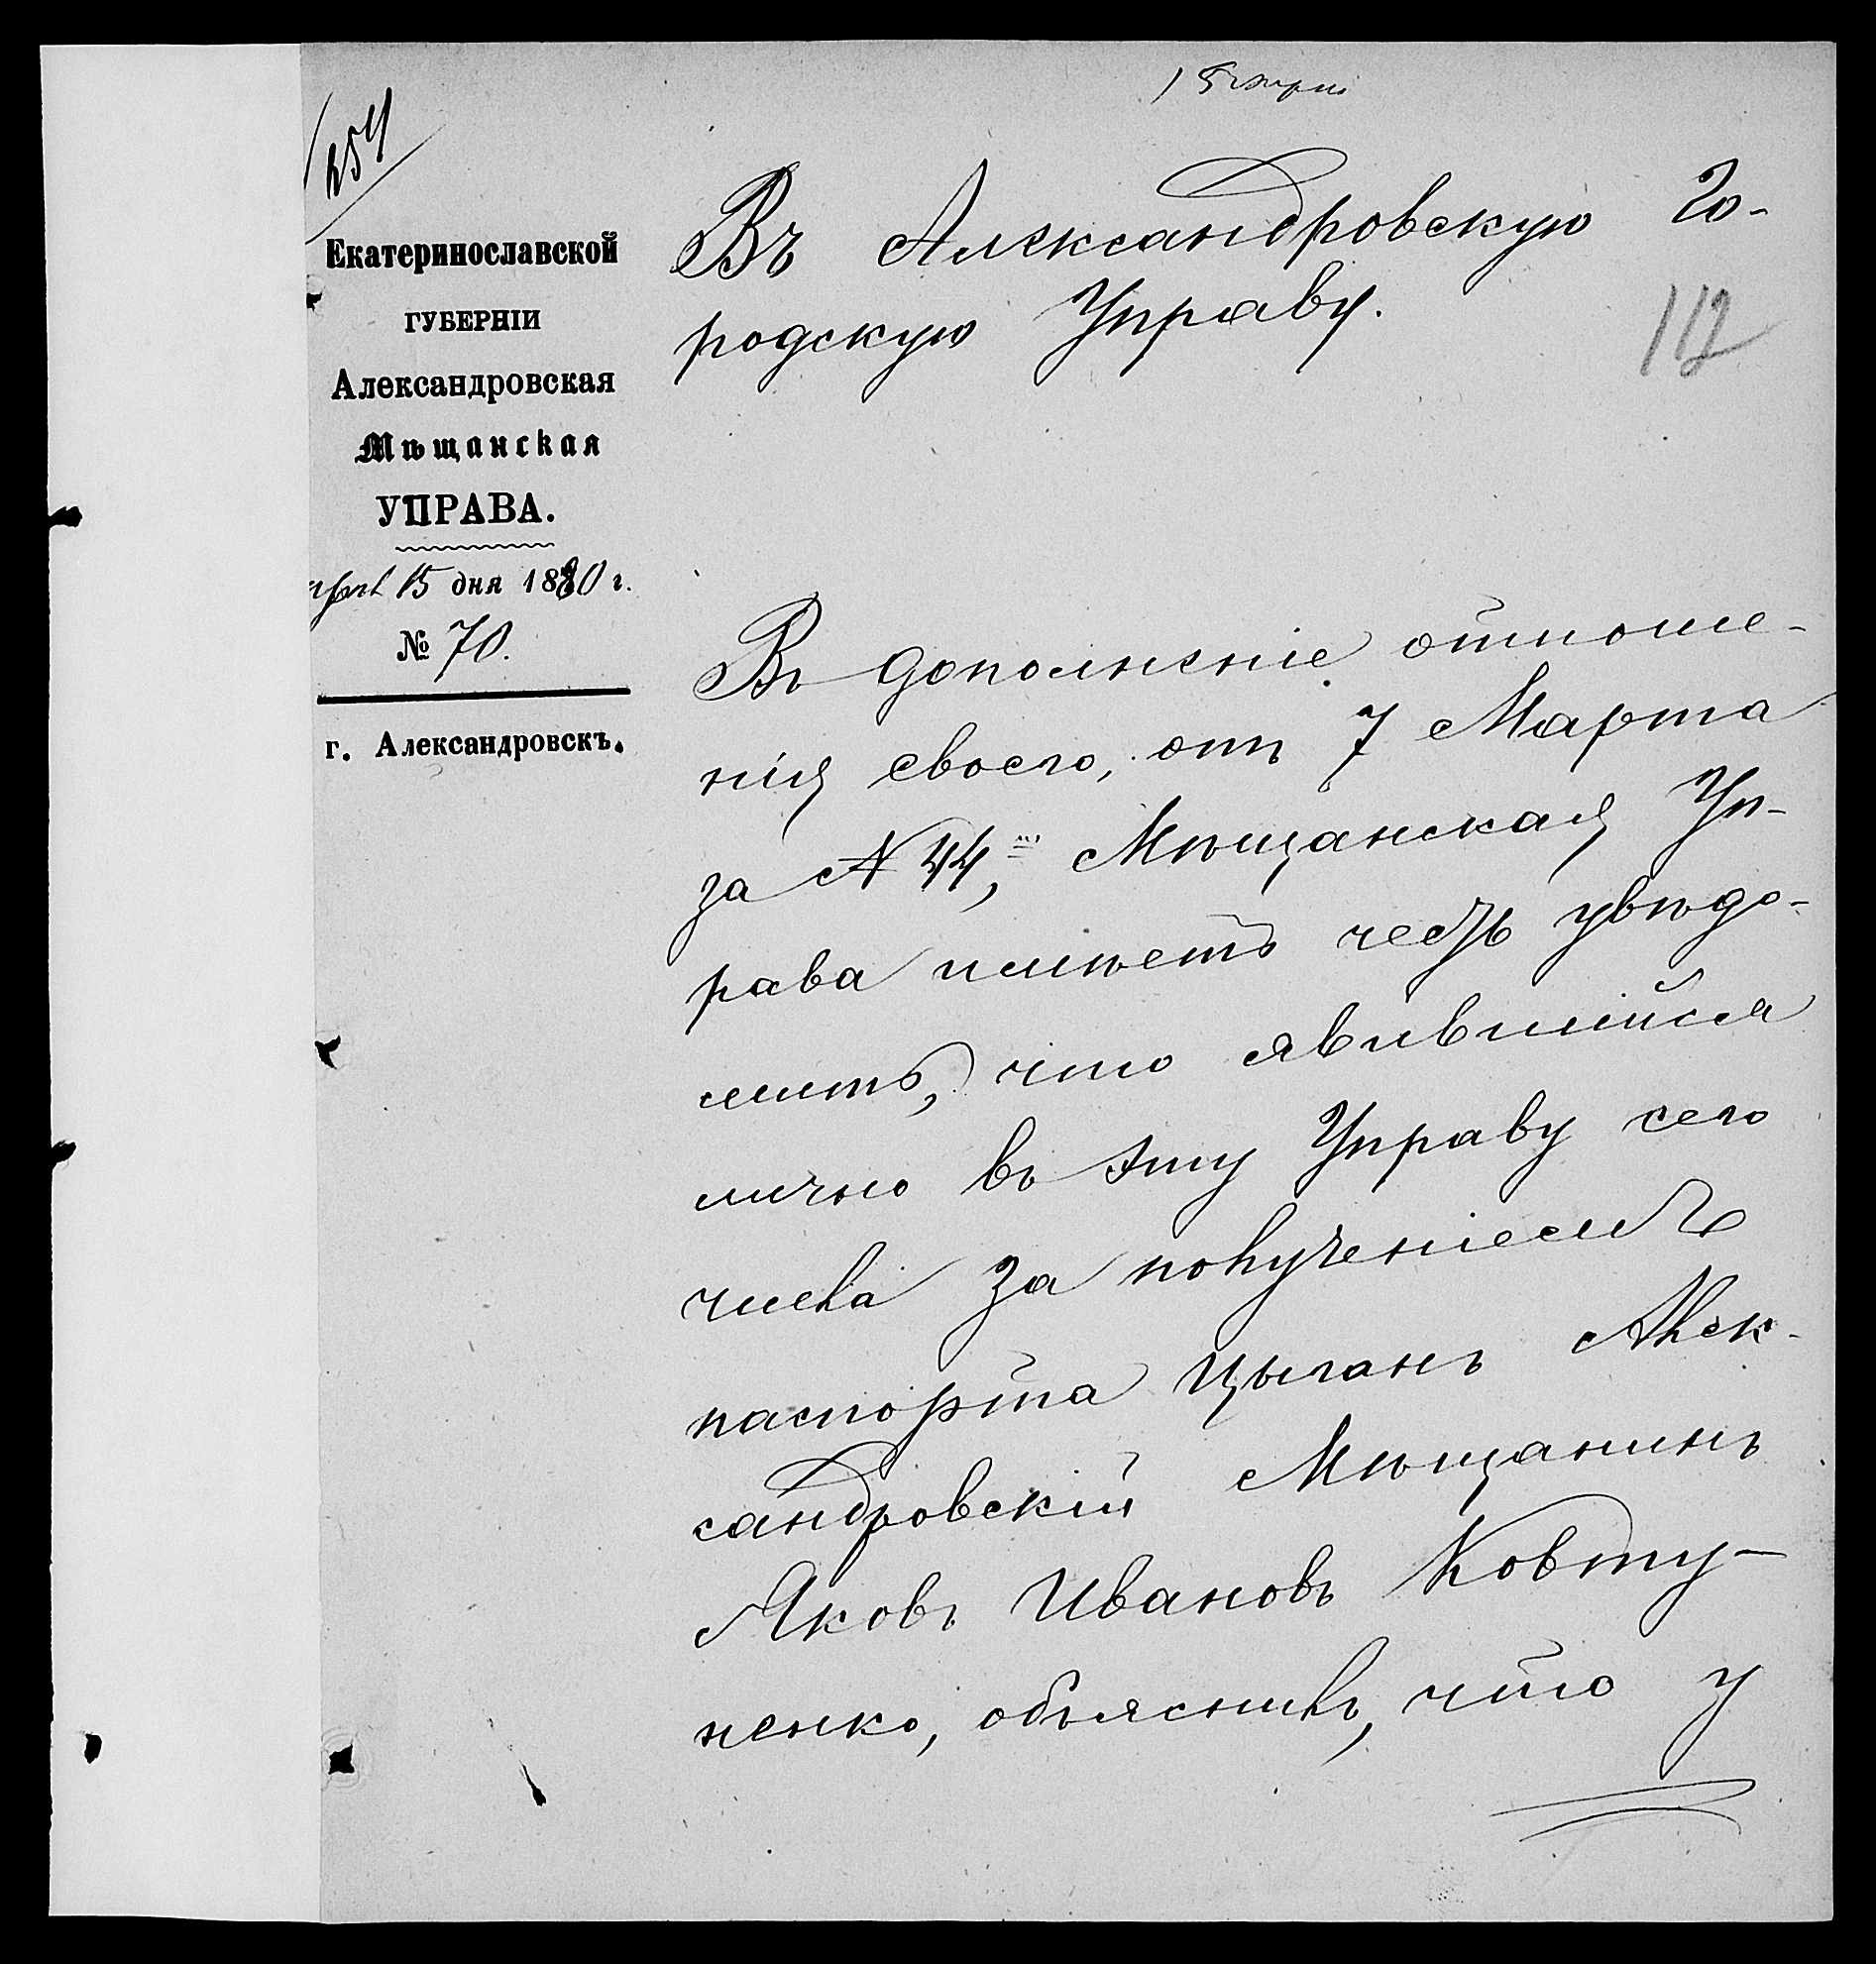 15 марта
254
Екатеринославской
ГУБЕРНІИ
Александровская
Мѣщанская
УПРАВА.
15 дня 1880 г.
№ 70.
г. Александровскъ.
Въ Александровскую Го-
родскую Управу.
112
Въ дополненіе отноше-
нія своего, отъ 7 Марта
за N 44, Мѣщанская Уп-
рава имѣетъ честь увѣдо-
мить, что явившійся
лично въ эту Управу сего
числа за полученіемъ
паспорта Цыганъ Алек-
сандровскій Мѣщанинъ
Яковъ Ивановъ Ковту-
ненко, объяснилъ, что у